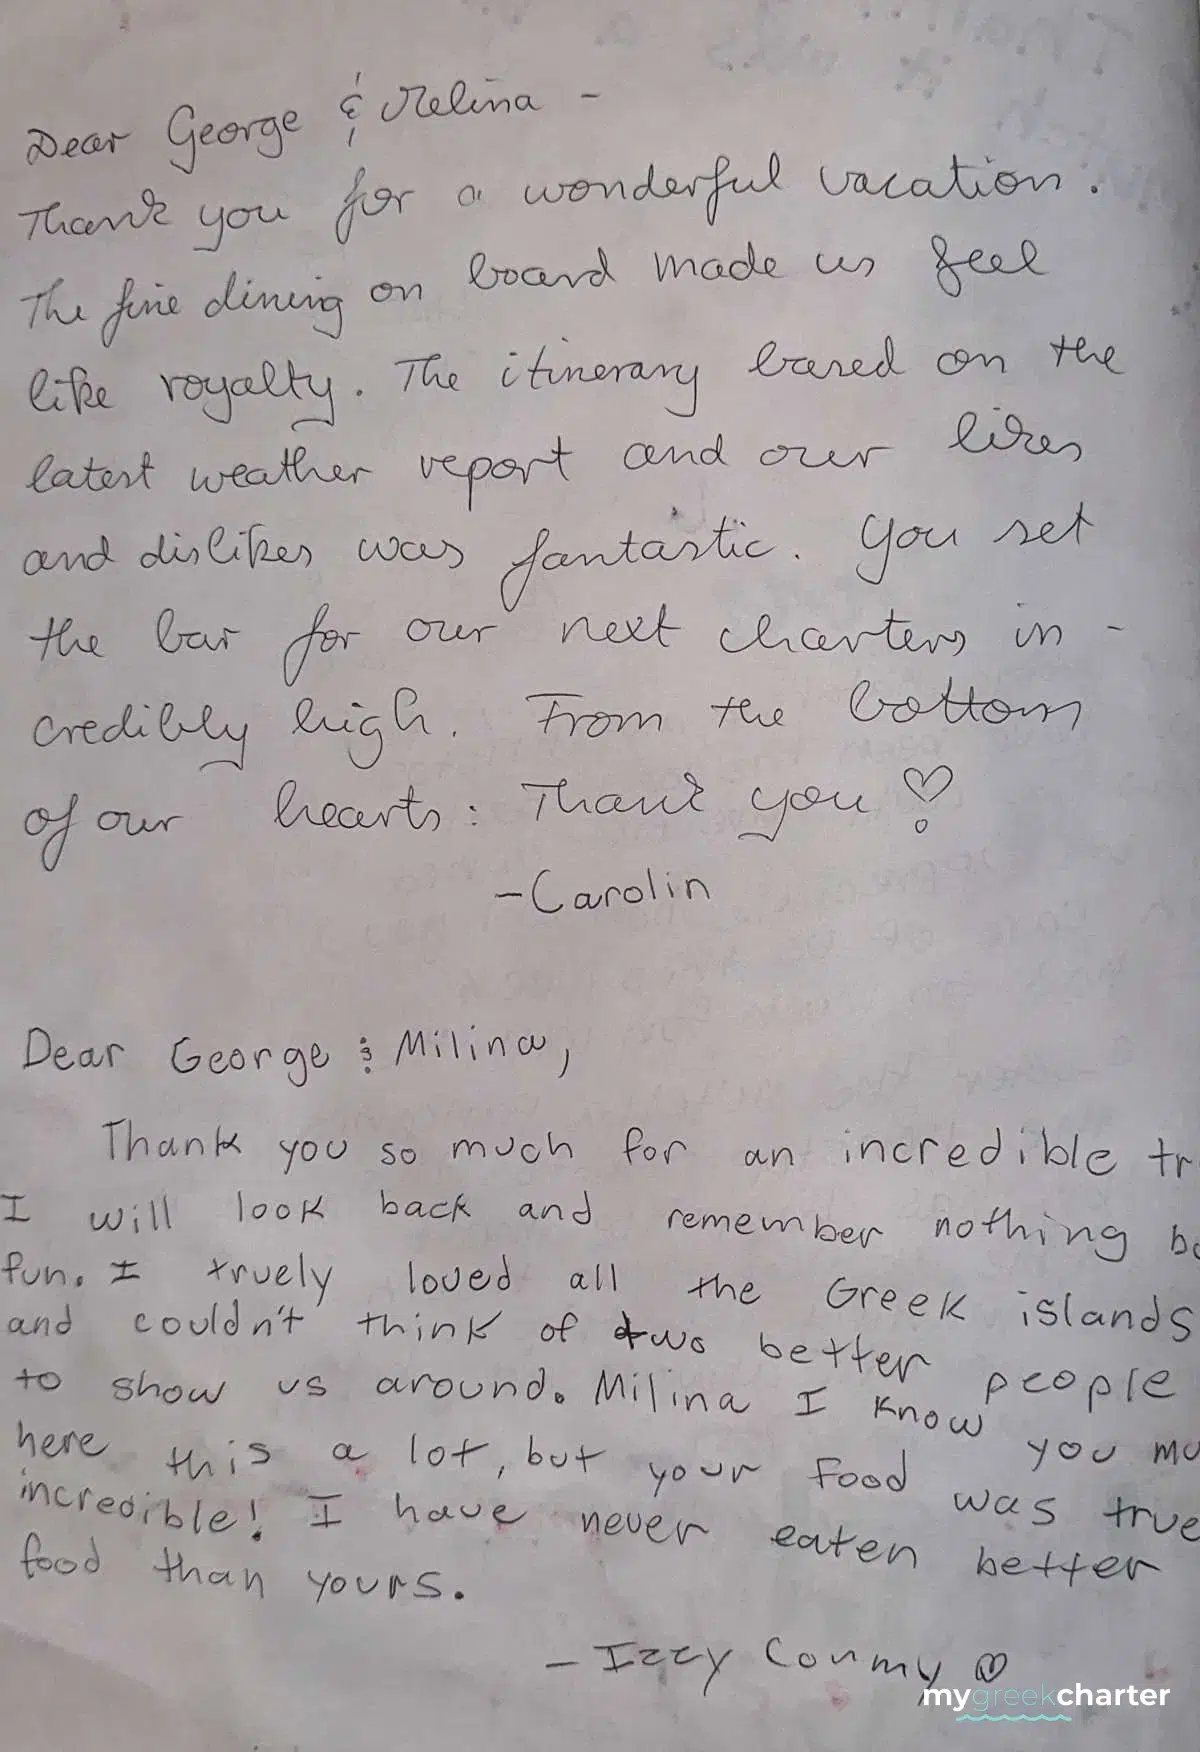 Dear George & Melina -
Thank you for a wonderful vacation.
The fine dining on board made us feel
like royalty. The itinerary based on the
latest weather report and our likes
and dislikes was fantastic. You set
the bar for our next charters in-
credibly high. From the bottom
of our hearts: Thank you
-Carolin
Dear George & Milina,
Thank you so much for an incredible tr
I will look back and remember nothing
fun. I truely loved all the Greek islands
and couldn't think of two better people
to show us around. Milina I know you mu
here this a lot, but your food was true
incredible! I have never eaten better
food than yours.
- Izzy Conmy
mygreekcharter